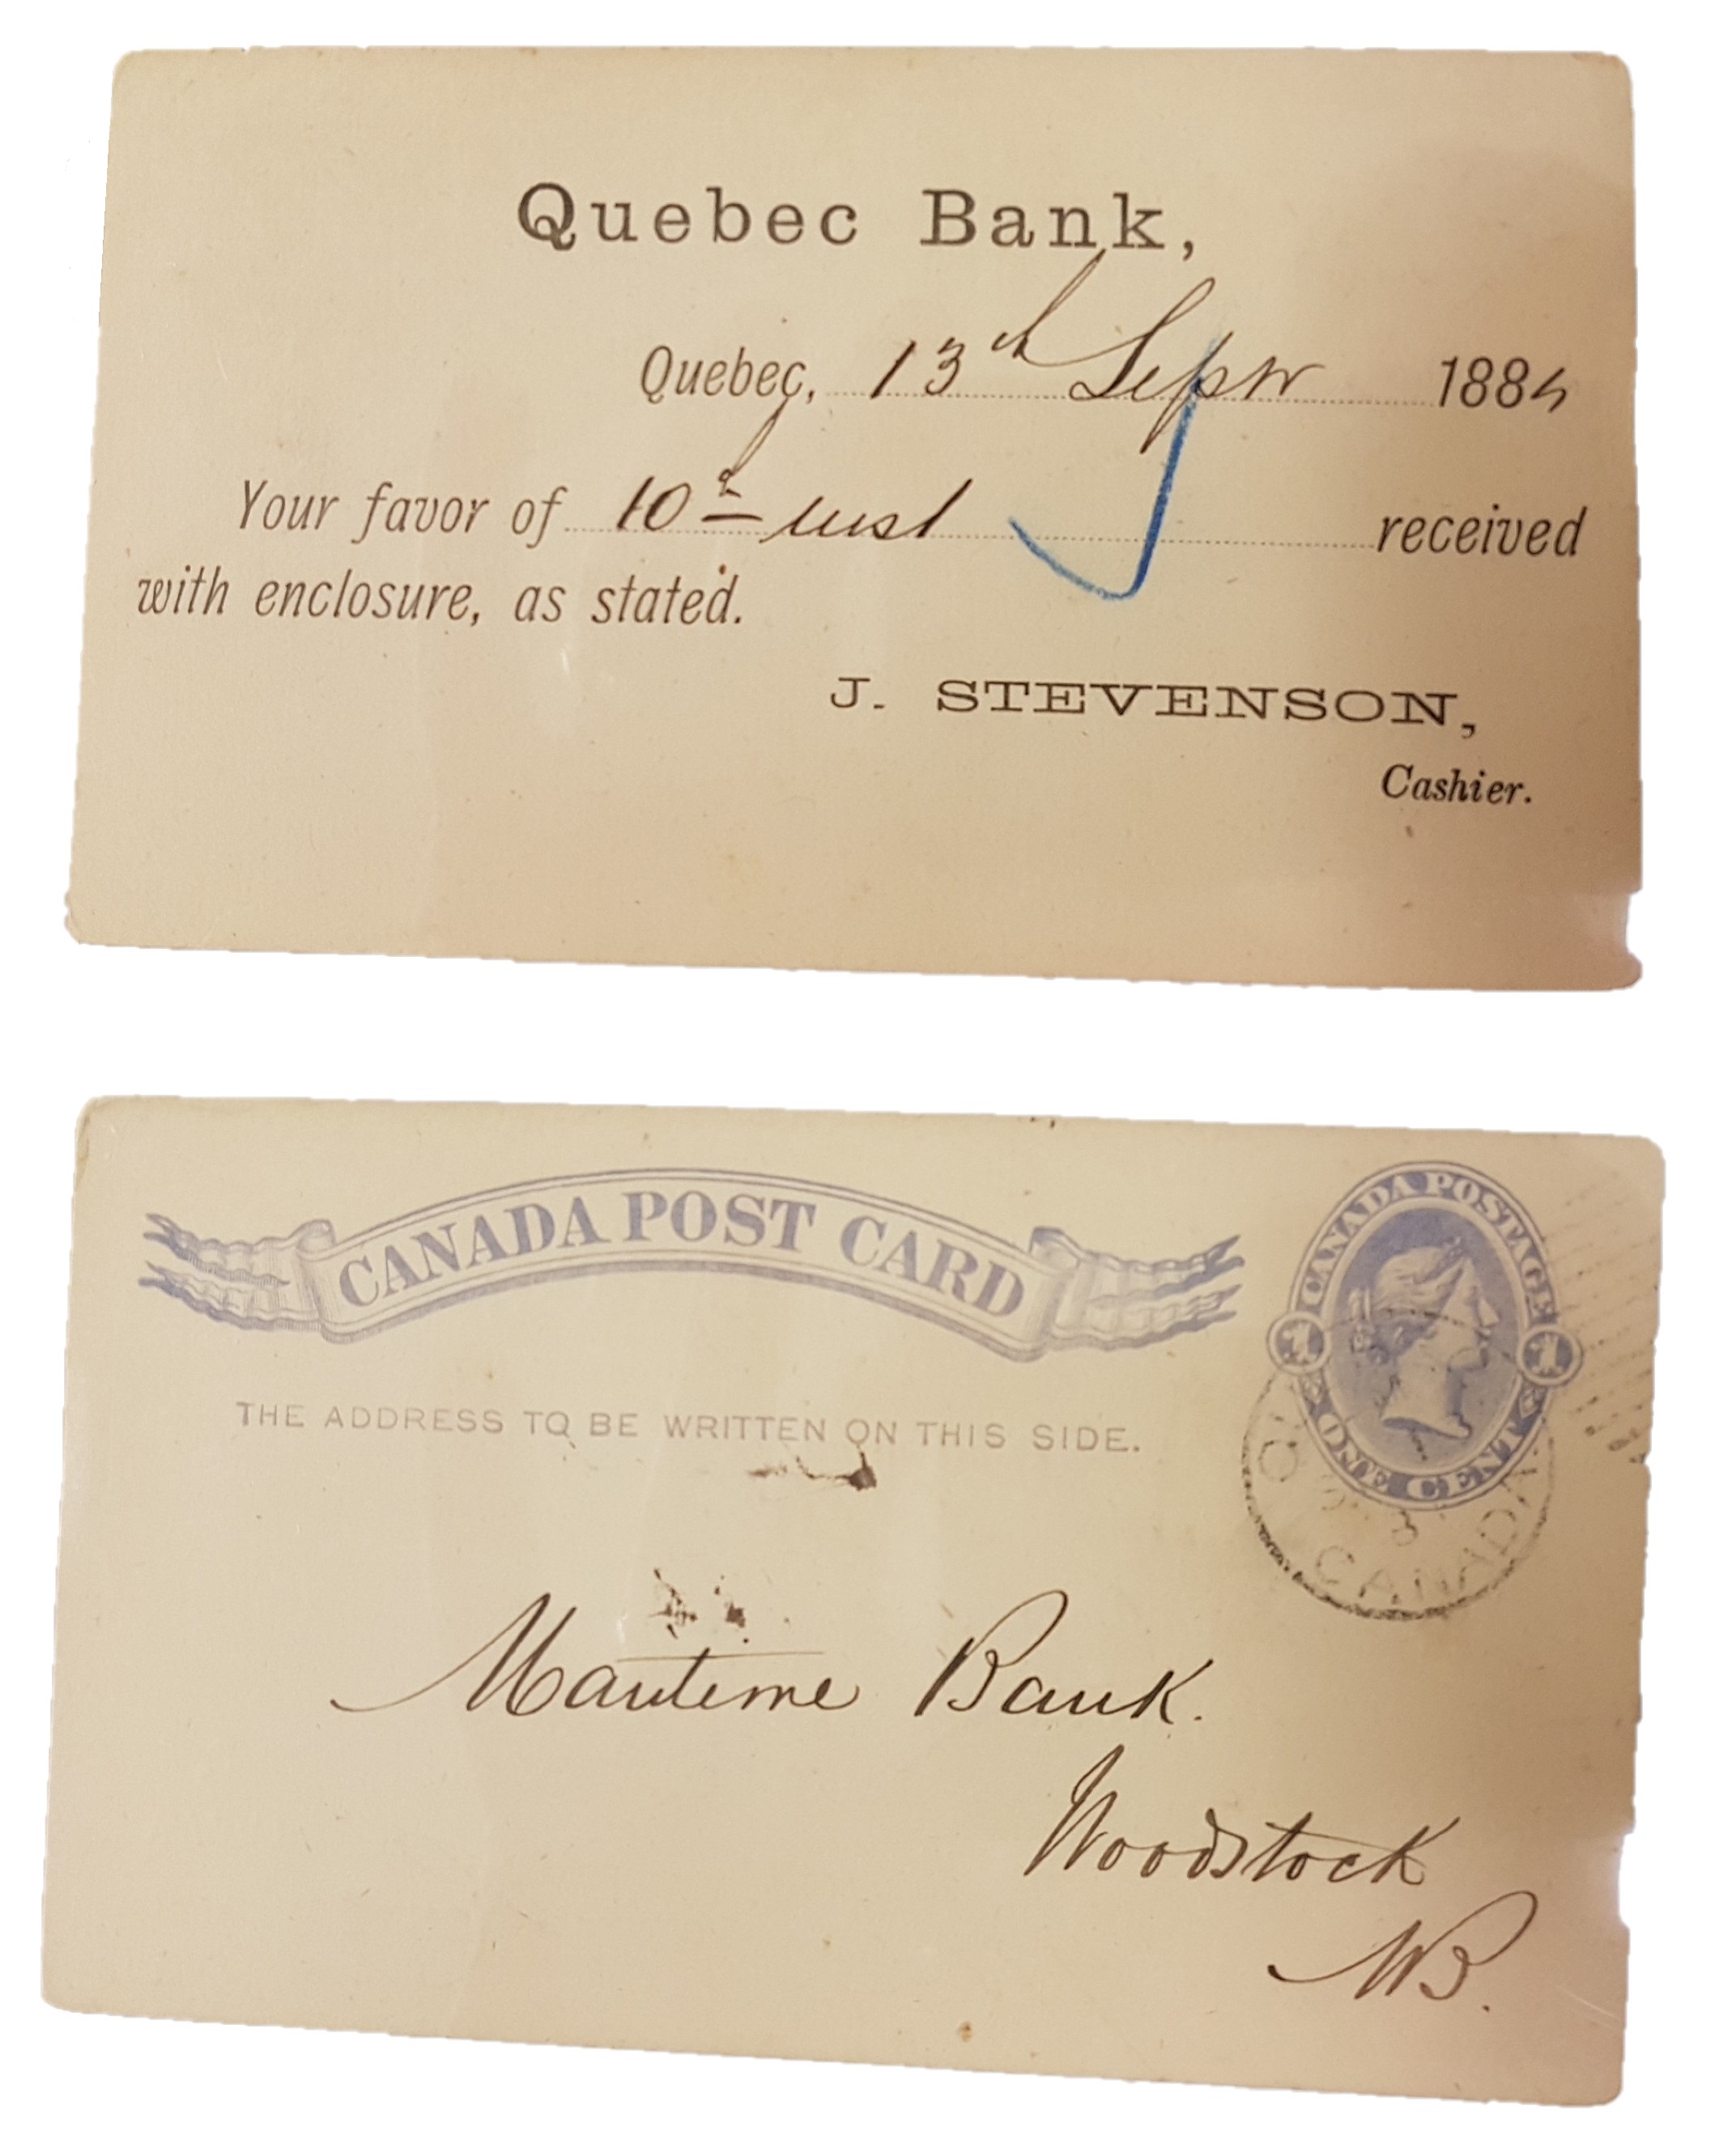 Quebec Bank,
Quebec, 13th Sepr 1884
Your favor of 10th inst received
with enclosure, as stated.
J. STEVENSON,
Cashier.
CANADA POST CARD
CANADA POSTAGE
1 1
ONE CENT
THE ADDRESS TO BE WRITTEN ON THIS SIDE.
CANADA
Maritime Bank.
Woodstock
NB.